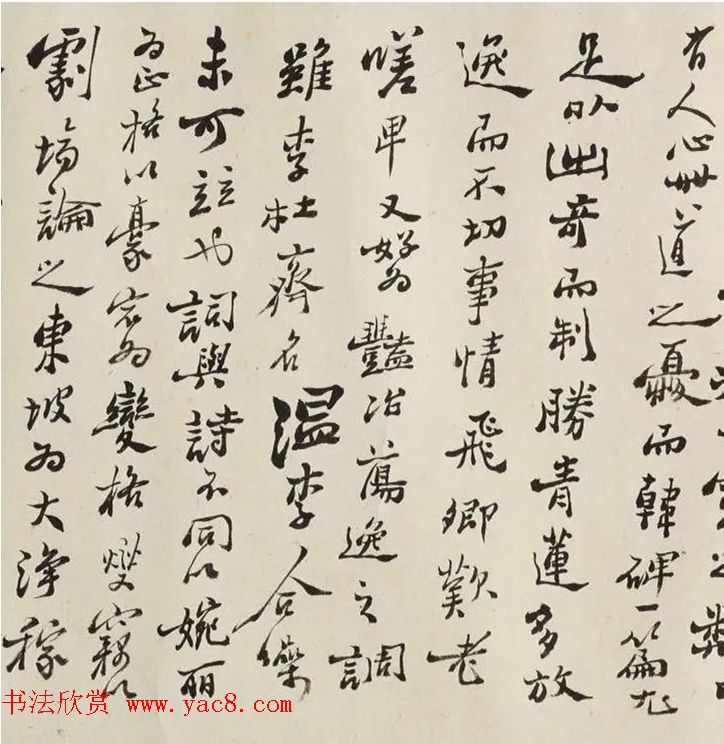 有人心世道之憂而韓碑一篇尤
足以出奇而制勝青蓮多放
逸而不切事情飛卿歎老
嗟卑又好為豔冶蕩逸之調
雖李杜齊名溫李合噪
未可竝也詞與詩不同以婉丽
為正格以豪宕為變格燮竊以
劇場論之東坡為大淨稼
书法欣赏 www.yac8.com